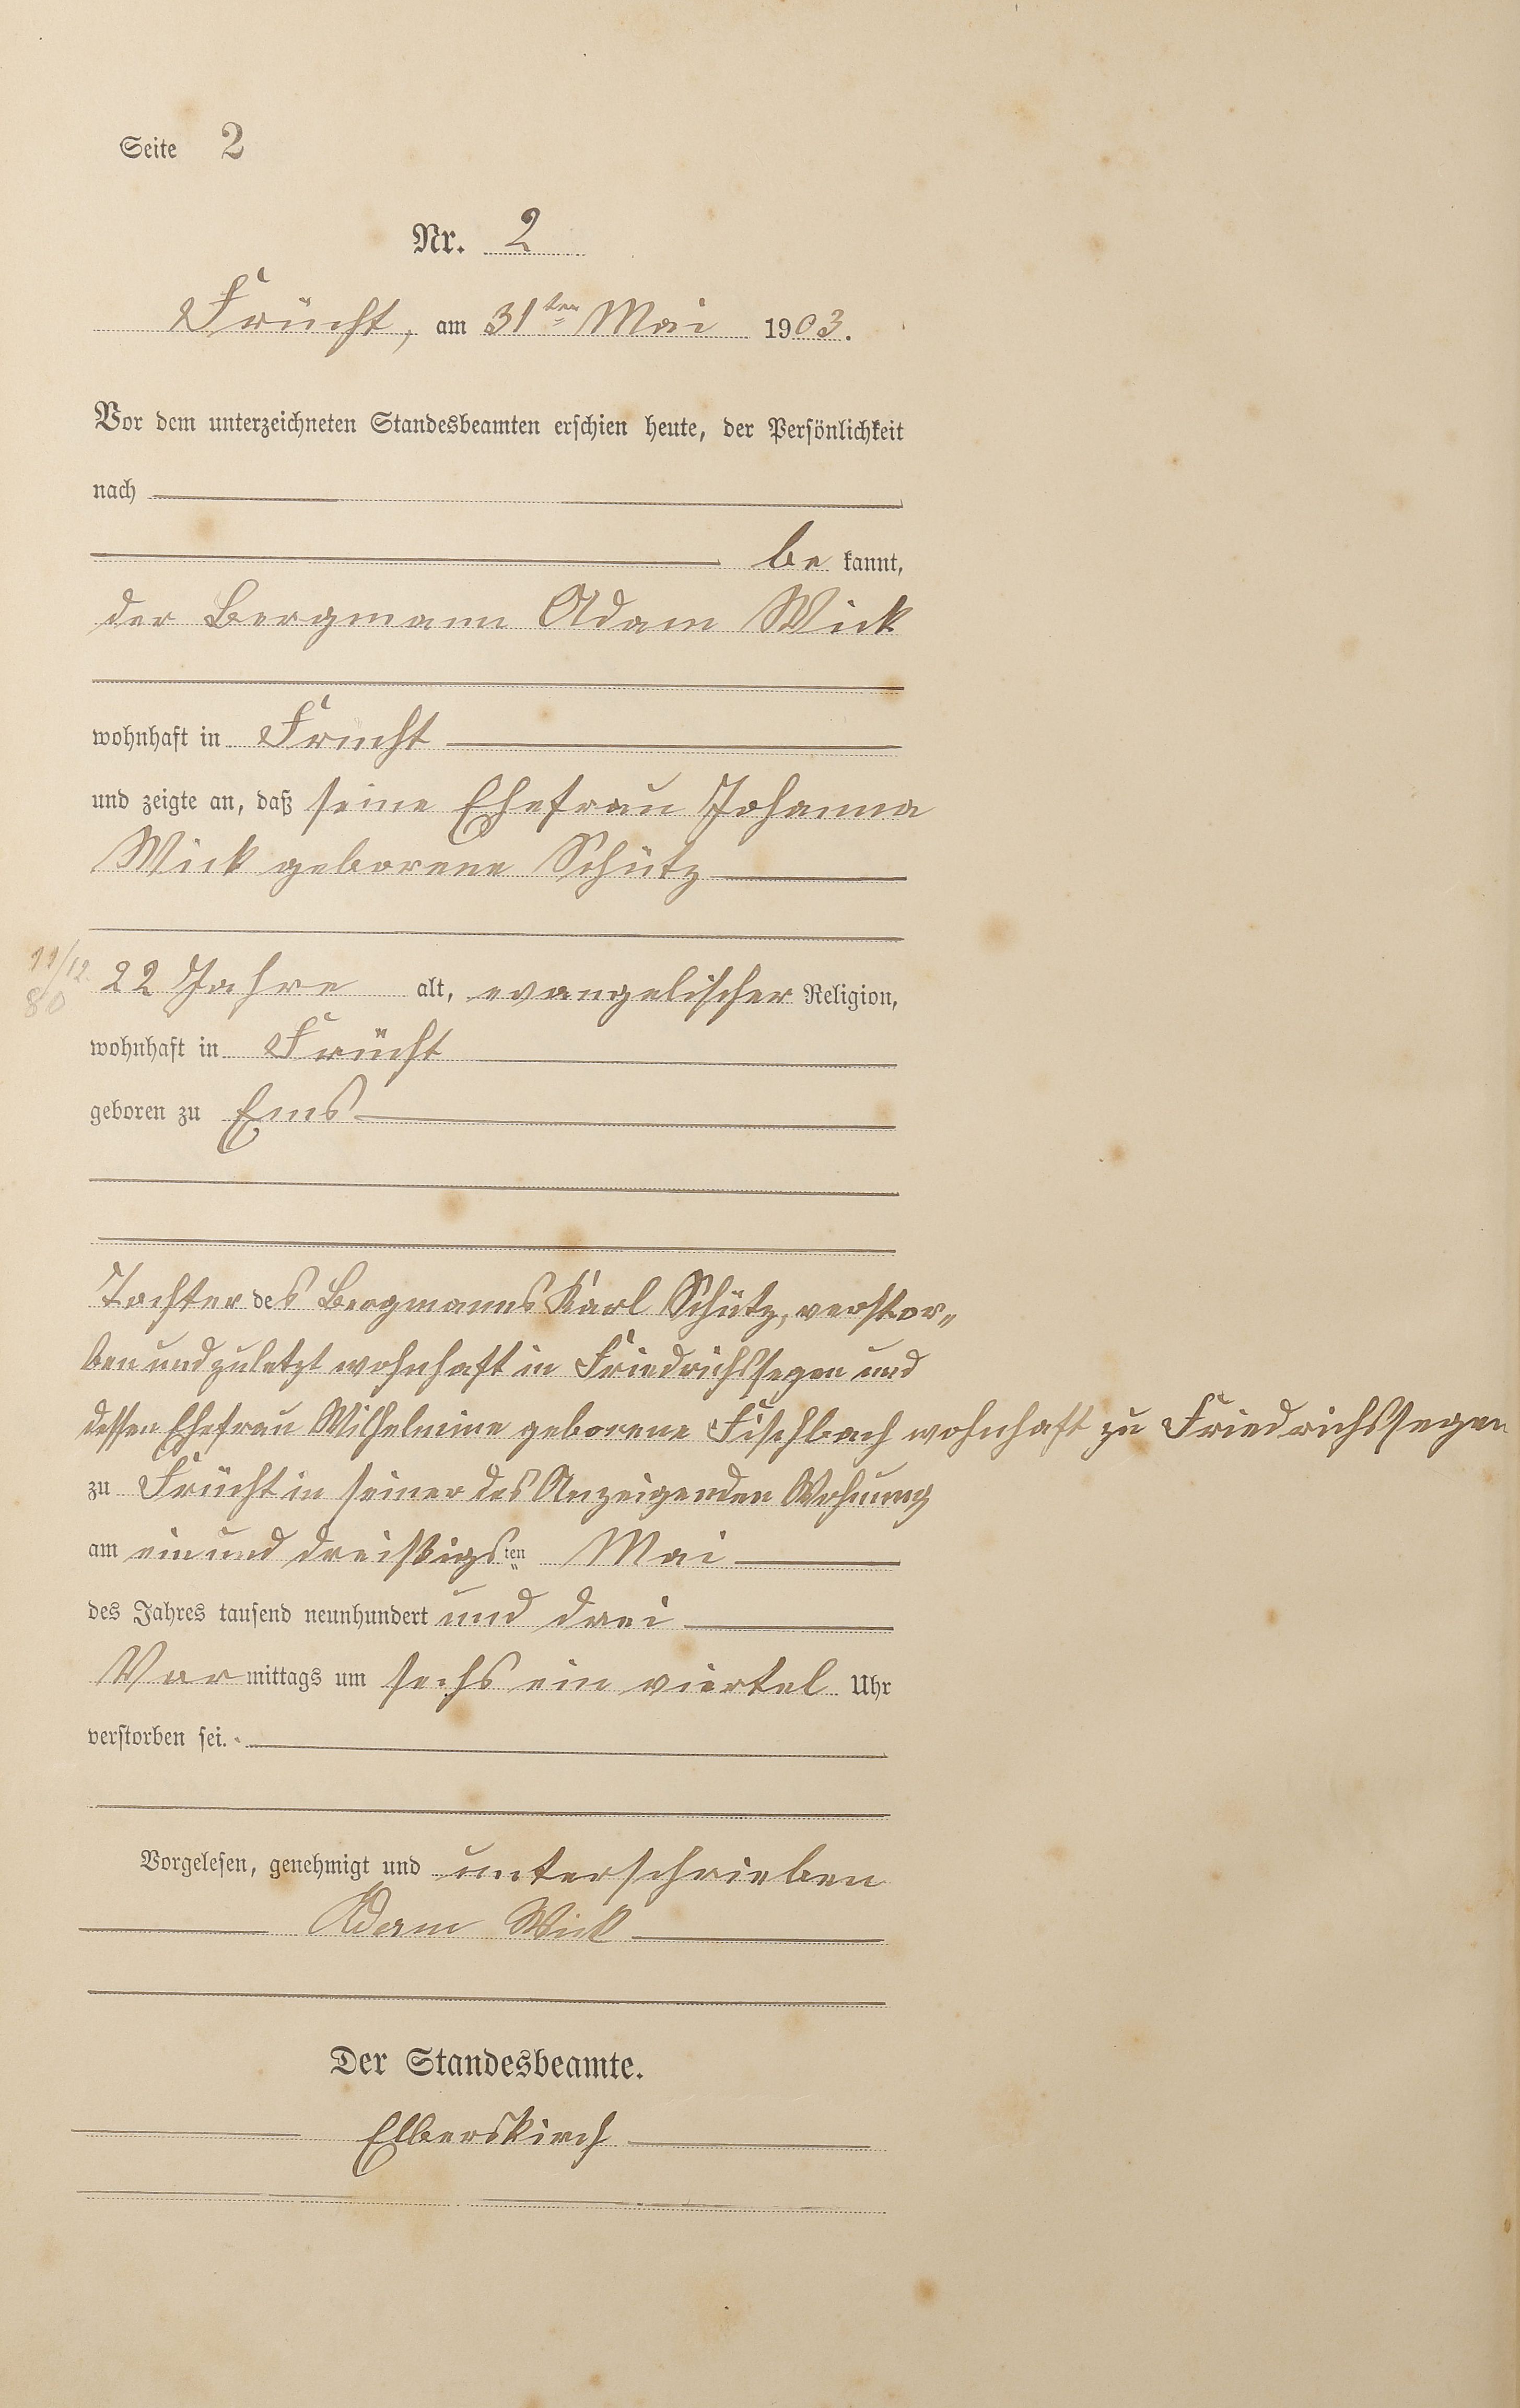 Seite 2
Nr. 2
Frücht, am 31ten Mai 1903.
Vor dem unterzeichneten Standesbeamten erschien heute, der Persönlichkeit
nach
be kannt,
der Bergmann Adam Wick
wohnhaft in Frücht
und zeigte an, daß seine Ehefrau Johanna
Wick geborene Schütz
11/12
80
22 Jahre alt, evangelischer Religion,
wohnhaft in Frücht
geboren zu Ems
Tochter des Bergmanns Karl Schütz, verstor„
ben und zuletzt wohnhaft in Friedrichssegen und
dessen Ehefrau Wilhelmine geborene Fischbach wohnhaft zu Friedrichssegen
zu Frücht in seiner des Anzeigenden Wohnung
am ein und dreißigsten Mai
des Jahres tausend neunhundert und drei
Vor mittags um sechs ein viertel Uhr
verstorben sei.
Vorgelesen, genehmigt und unterschrieben
Adam Wick
Der Standesbeamte.
Elberskirch